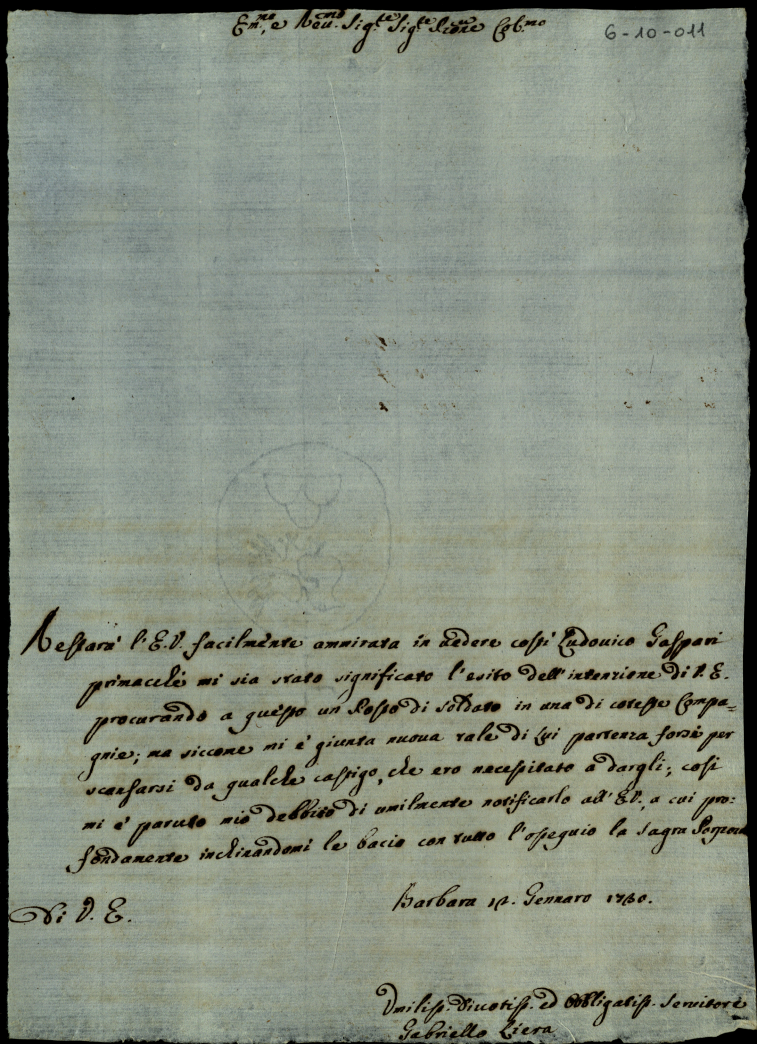 Em.mo, e Rev.mo Sig.re Sig.re P̃rone Col.mo
6-10-011
Restarà l'E.V. facilmente ammirata in vedere costì Ludovico Gaspari
primacchè mi sia stato significato l'esito dell'intenzione di V.E.
procurando a questo un Posto di soldato in una di coteste Compa=
gnie; ma siccome mi è giunta nuova tale di Lui partenza forse per
scansarsi da qualche castigo, che ero necessitato a dargli; così
mi è paruto mio debbito di umilmente notificarlo all'E.V., a cui pro:
fondamente inchinandomi le bacio con tutto l'ossequio la Sagra Porpora
Di V.E.
Barbara Gennaro
Umiliss. Divotiss. ed Obbligatiss. Servitore
Gabriello